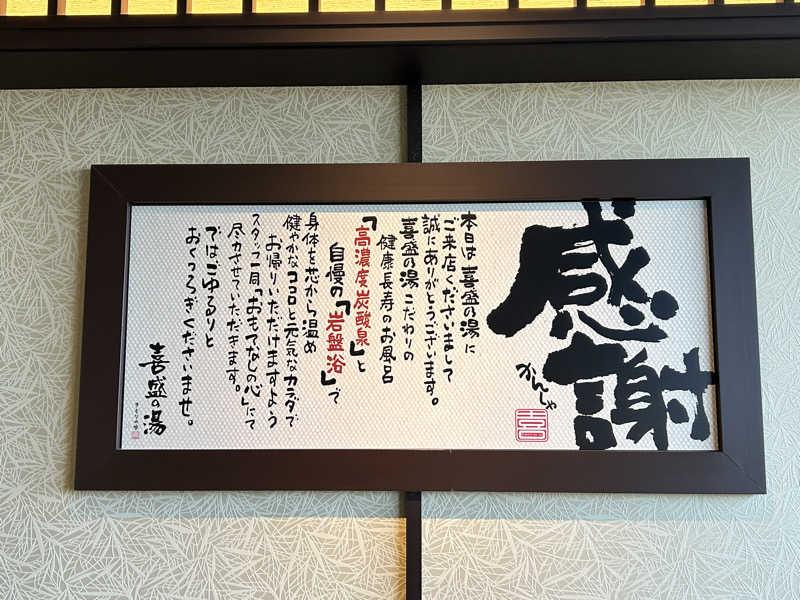 感謝
かんしゃ
喜
本日は 喜盛の湯に
ご来店くださいまして
誠にありがとうございます。
喜盛の湯こだわりの
健康長寿のお風呂
「高濃度炭酸泉」と
自慢の「岩盤浴」で
身体を芯から温め
健やかなココロと元気なカラダで
お帰りいただけますよう
スタッフ一同「おもてなしの心」にて
尽力させていただきます。
ではごゆるりと
おくつろぎくださいませ。
喜盛の湯